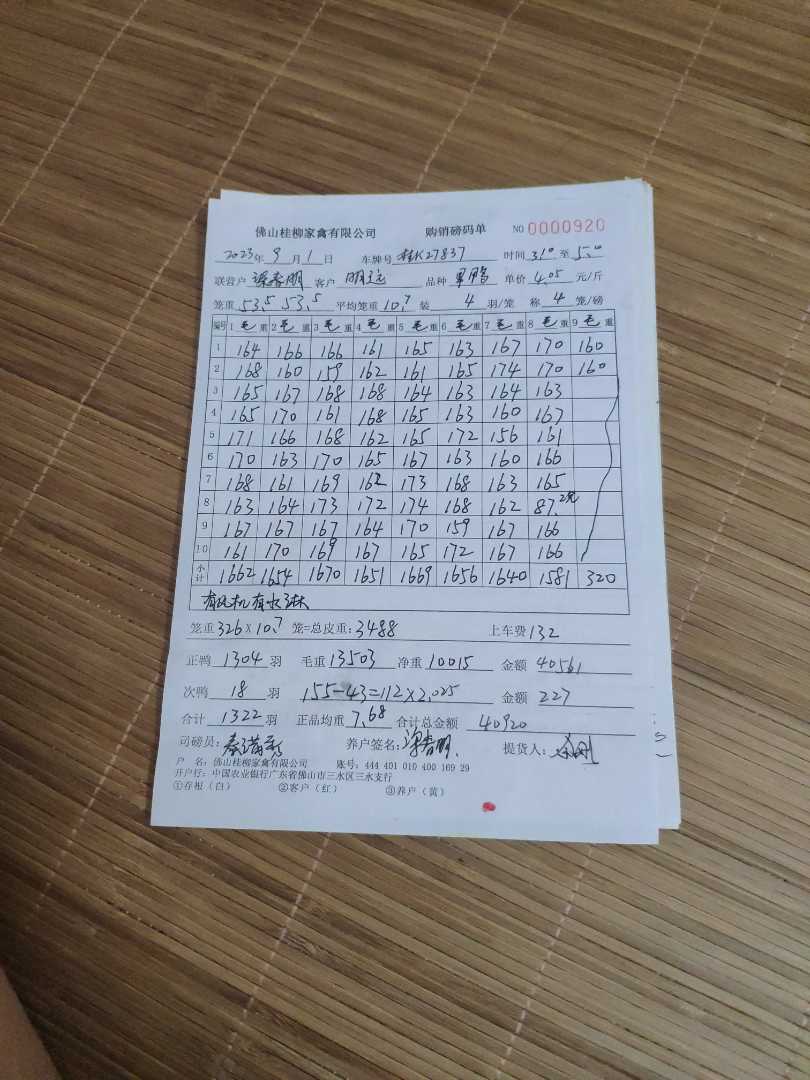 佛山桂柳家禽有限公司 购销磅码单 NO 0000920
2023年 9 月 1 日 车牌号 桂K27837 时间 31⁰ 至 5.⁰
联营户 客户 明远 品种 单价 4.05 元/斤
笼重 53.5 53.5 平均笼重 10.7 装 4 羽/笼 称 4 笼/磅
编号 1 毛 重 2 毛 重 3 毛 重 4 毛 重 5 毛 重 6 毛 重 7 毛 重 8 毛 重 9 毛 重
1 164 166 166 161 165 163 167 170 160
2 168 160 159 162 161 165 174 170 160
3 165 167 168 168 164 163 164 163
4 165 170 161 168 165 163 160 167
5 171 166 168 162 165 172 156 161
6 170 163 170 165 167 163 160 166
7 168 161 169 162 173 168 163 165
8 163 164 173 172 174 168 162 87.2笼
9 167 167 167 164 170 159 167 166
10 161 170 169 167 165 172 167 166
小计 1662 1654 1670 1651 1669 1656 1640 1581 320
笼重 326 X 10.7 笼=总皮重: 3488 上车费 132
正鸭 1304 羽 毛重 13503 净重 10015 金额 40561
次鸭 18 羽 155-43=112×2.025 金额 227
合计 1322 羽 正品均重 7.68 合计总金额 40920
司磅员: 养户签名: 提货人:
户 名: 佛山桂柳家禽有限公司 账号: 444 401 010 400 169 29
开户行: 中国农业银行广东省佛山市三水区三水支行
①存根(白) ②客户(红) ③养户(黄)